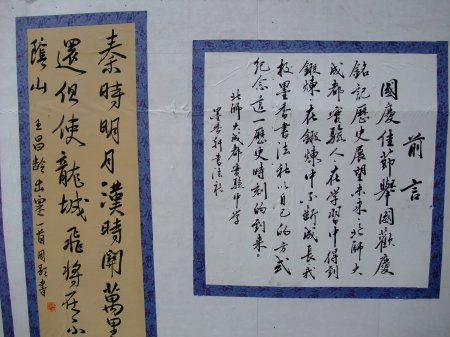 前言
國慶佳節舉國歡慶
銘記歷史展望未來北師大
成都實驗人在學習中得到
鍛煉在鍛煉中不斷成長我
校墨香書法社以自己的方式
紀念這一歷史時刻的到來
北師大成都實驗中學
墨香軒書法社
秦時明月漢時關萬里
還但使龍城飛將在不
陰山
王昌齡出塞一首